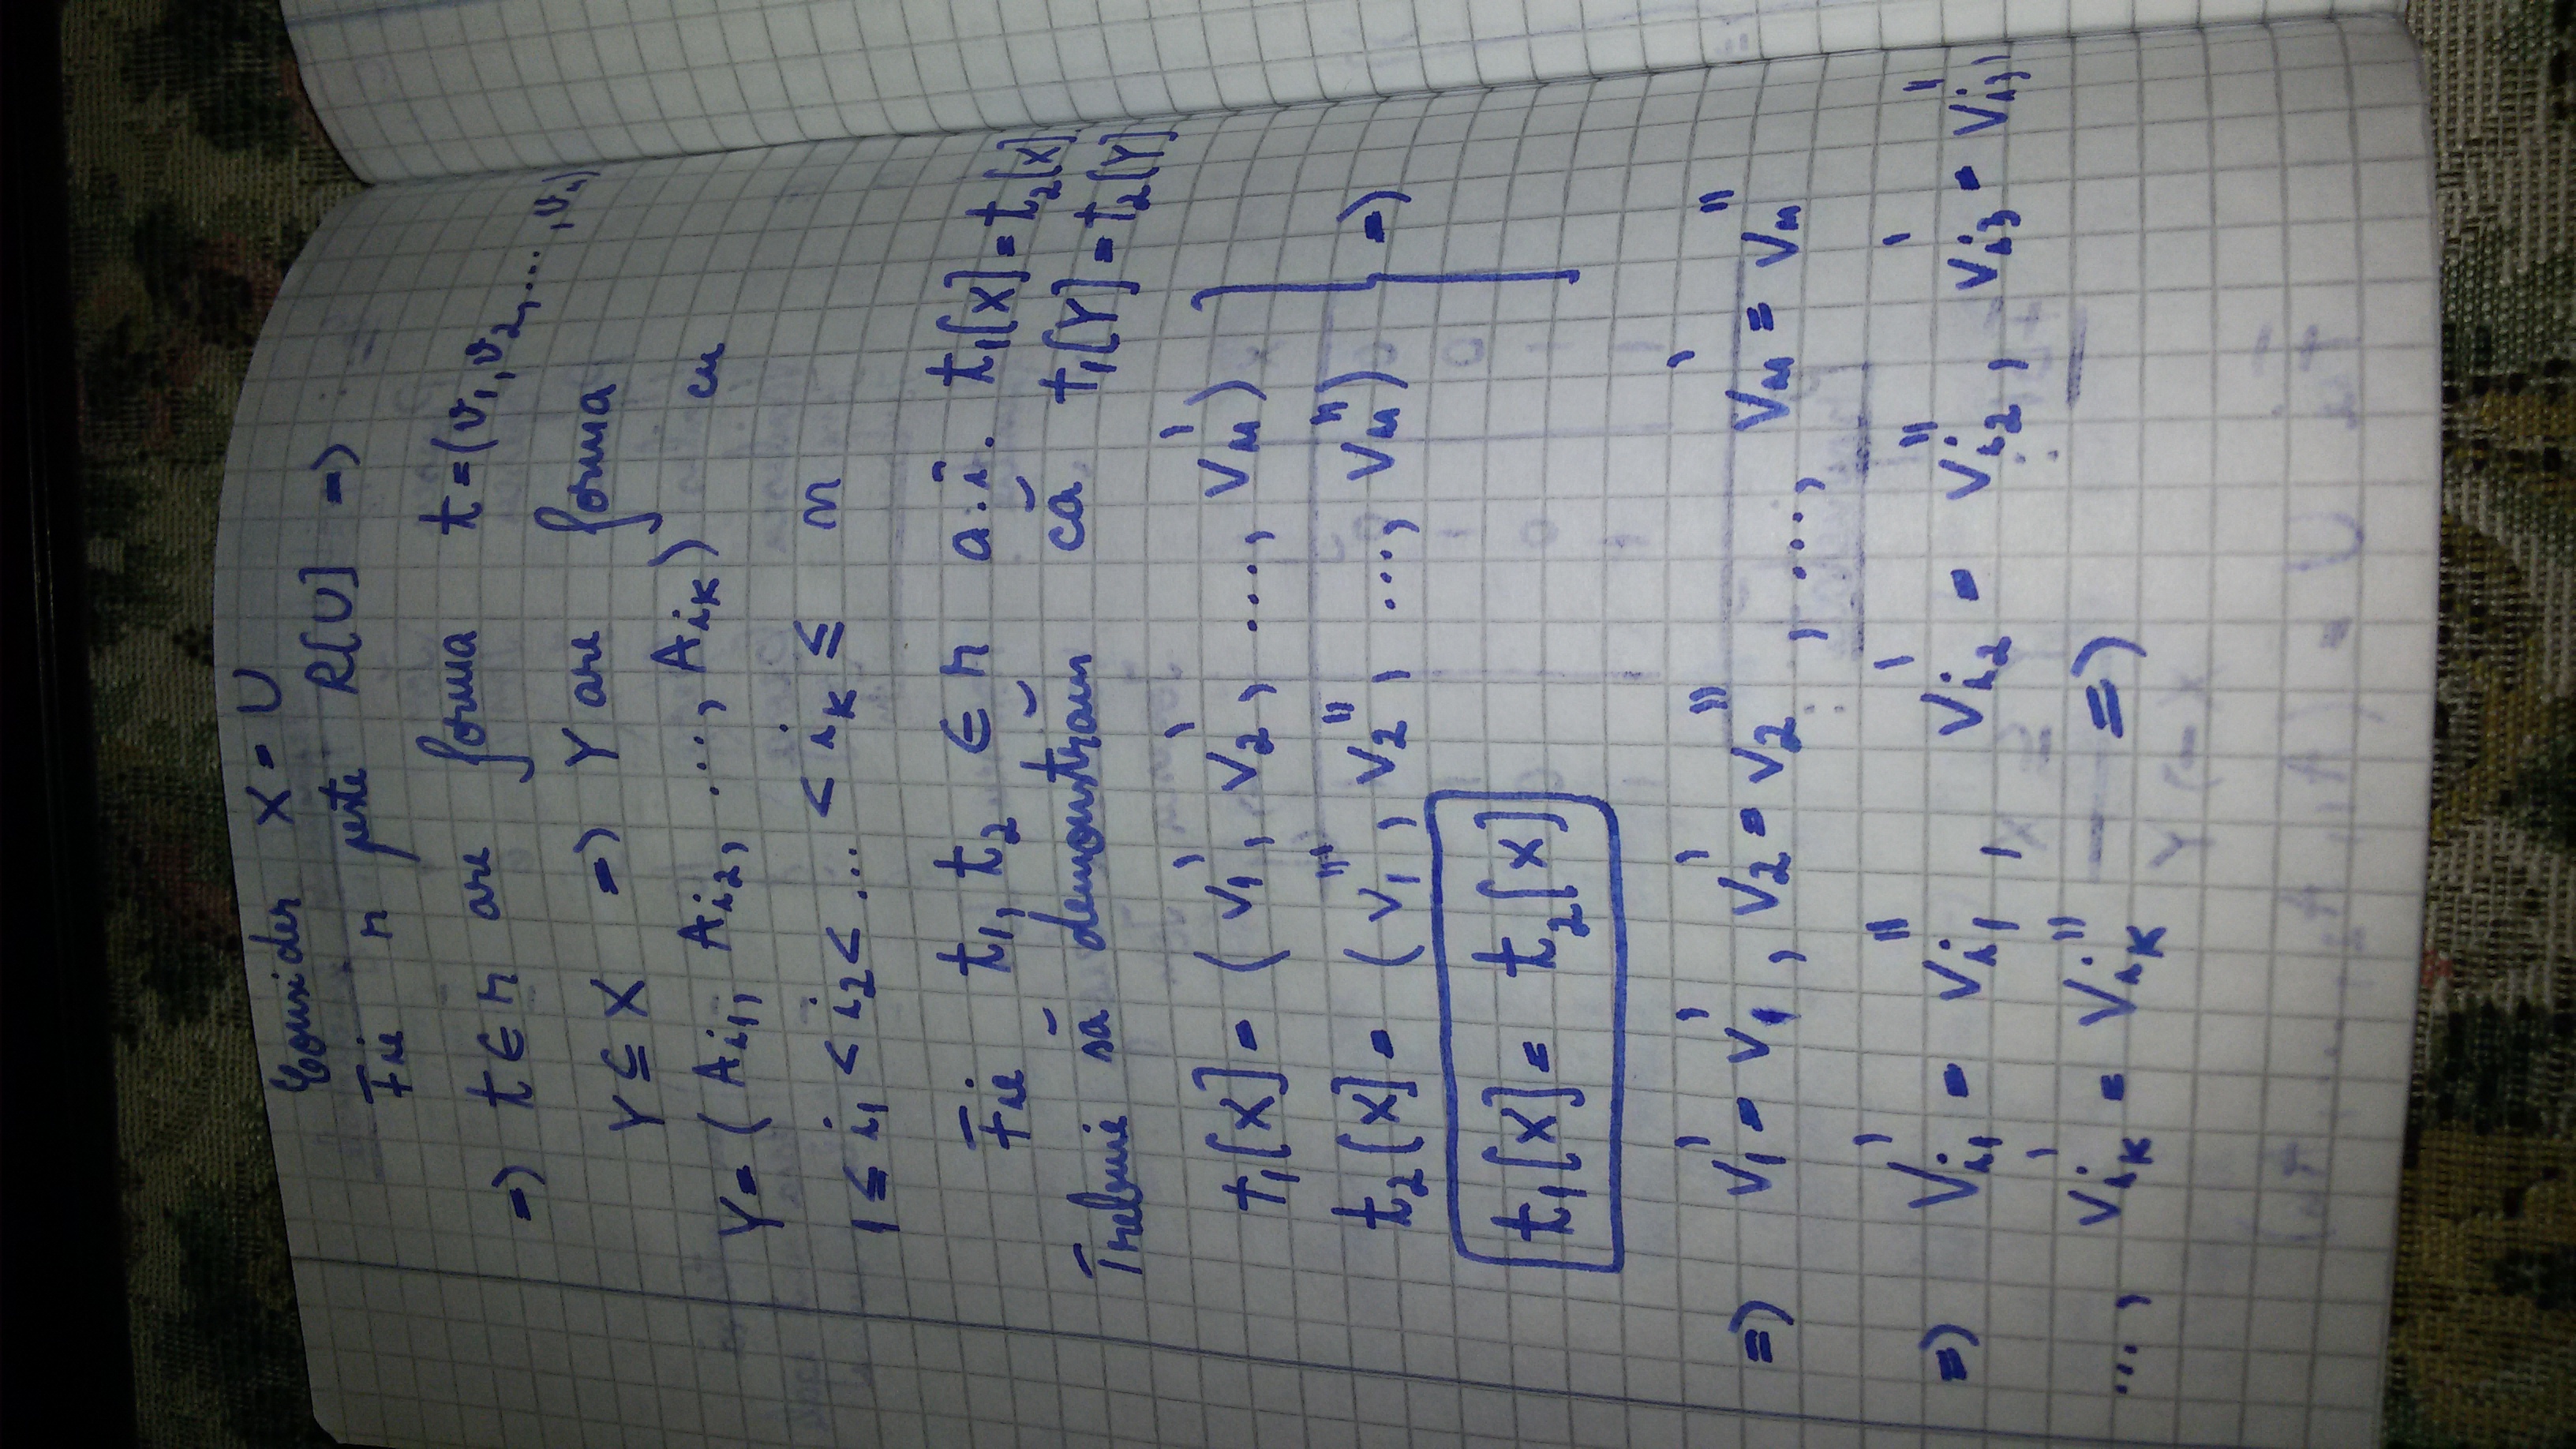 Consider X = U
Fie r peste R[U] =>
=> t ∈ r are forma t = (v₁, v₂, ..., vₙ)
Y ⊆ X => Y are forma
Y = (A_{i₁}, A_{i₂}, ..., A_{iₖ}) cu
1 ≤ i₁ < i₂ < ... < iₖ ≤ n
Fie t₁, t₂ ∈ r a.î. t₁[X] = t₂[X]
Trebuie să demonstrăm că t₁[Y] = t₂[Y]
t₁[X] = (v₁', v₂', ..., vₙ')
t₂[X] = (v₁'', v₂'', ..., vₙ'') =>
t₁[X] = t₂[X]
=> v₁' = v₁', v₂' = v₂'', ..., vₙ' = vₙ''
=> v_{i₁}' = v_{i₁}'', v_{i₂}' = v_{i₂}'', v_{i₃}' = v_{i₃}'',
..., v_{iₖ}' = v_{iₖ}'' =>